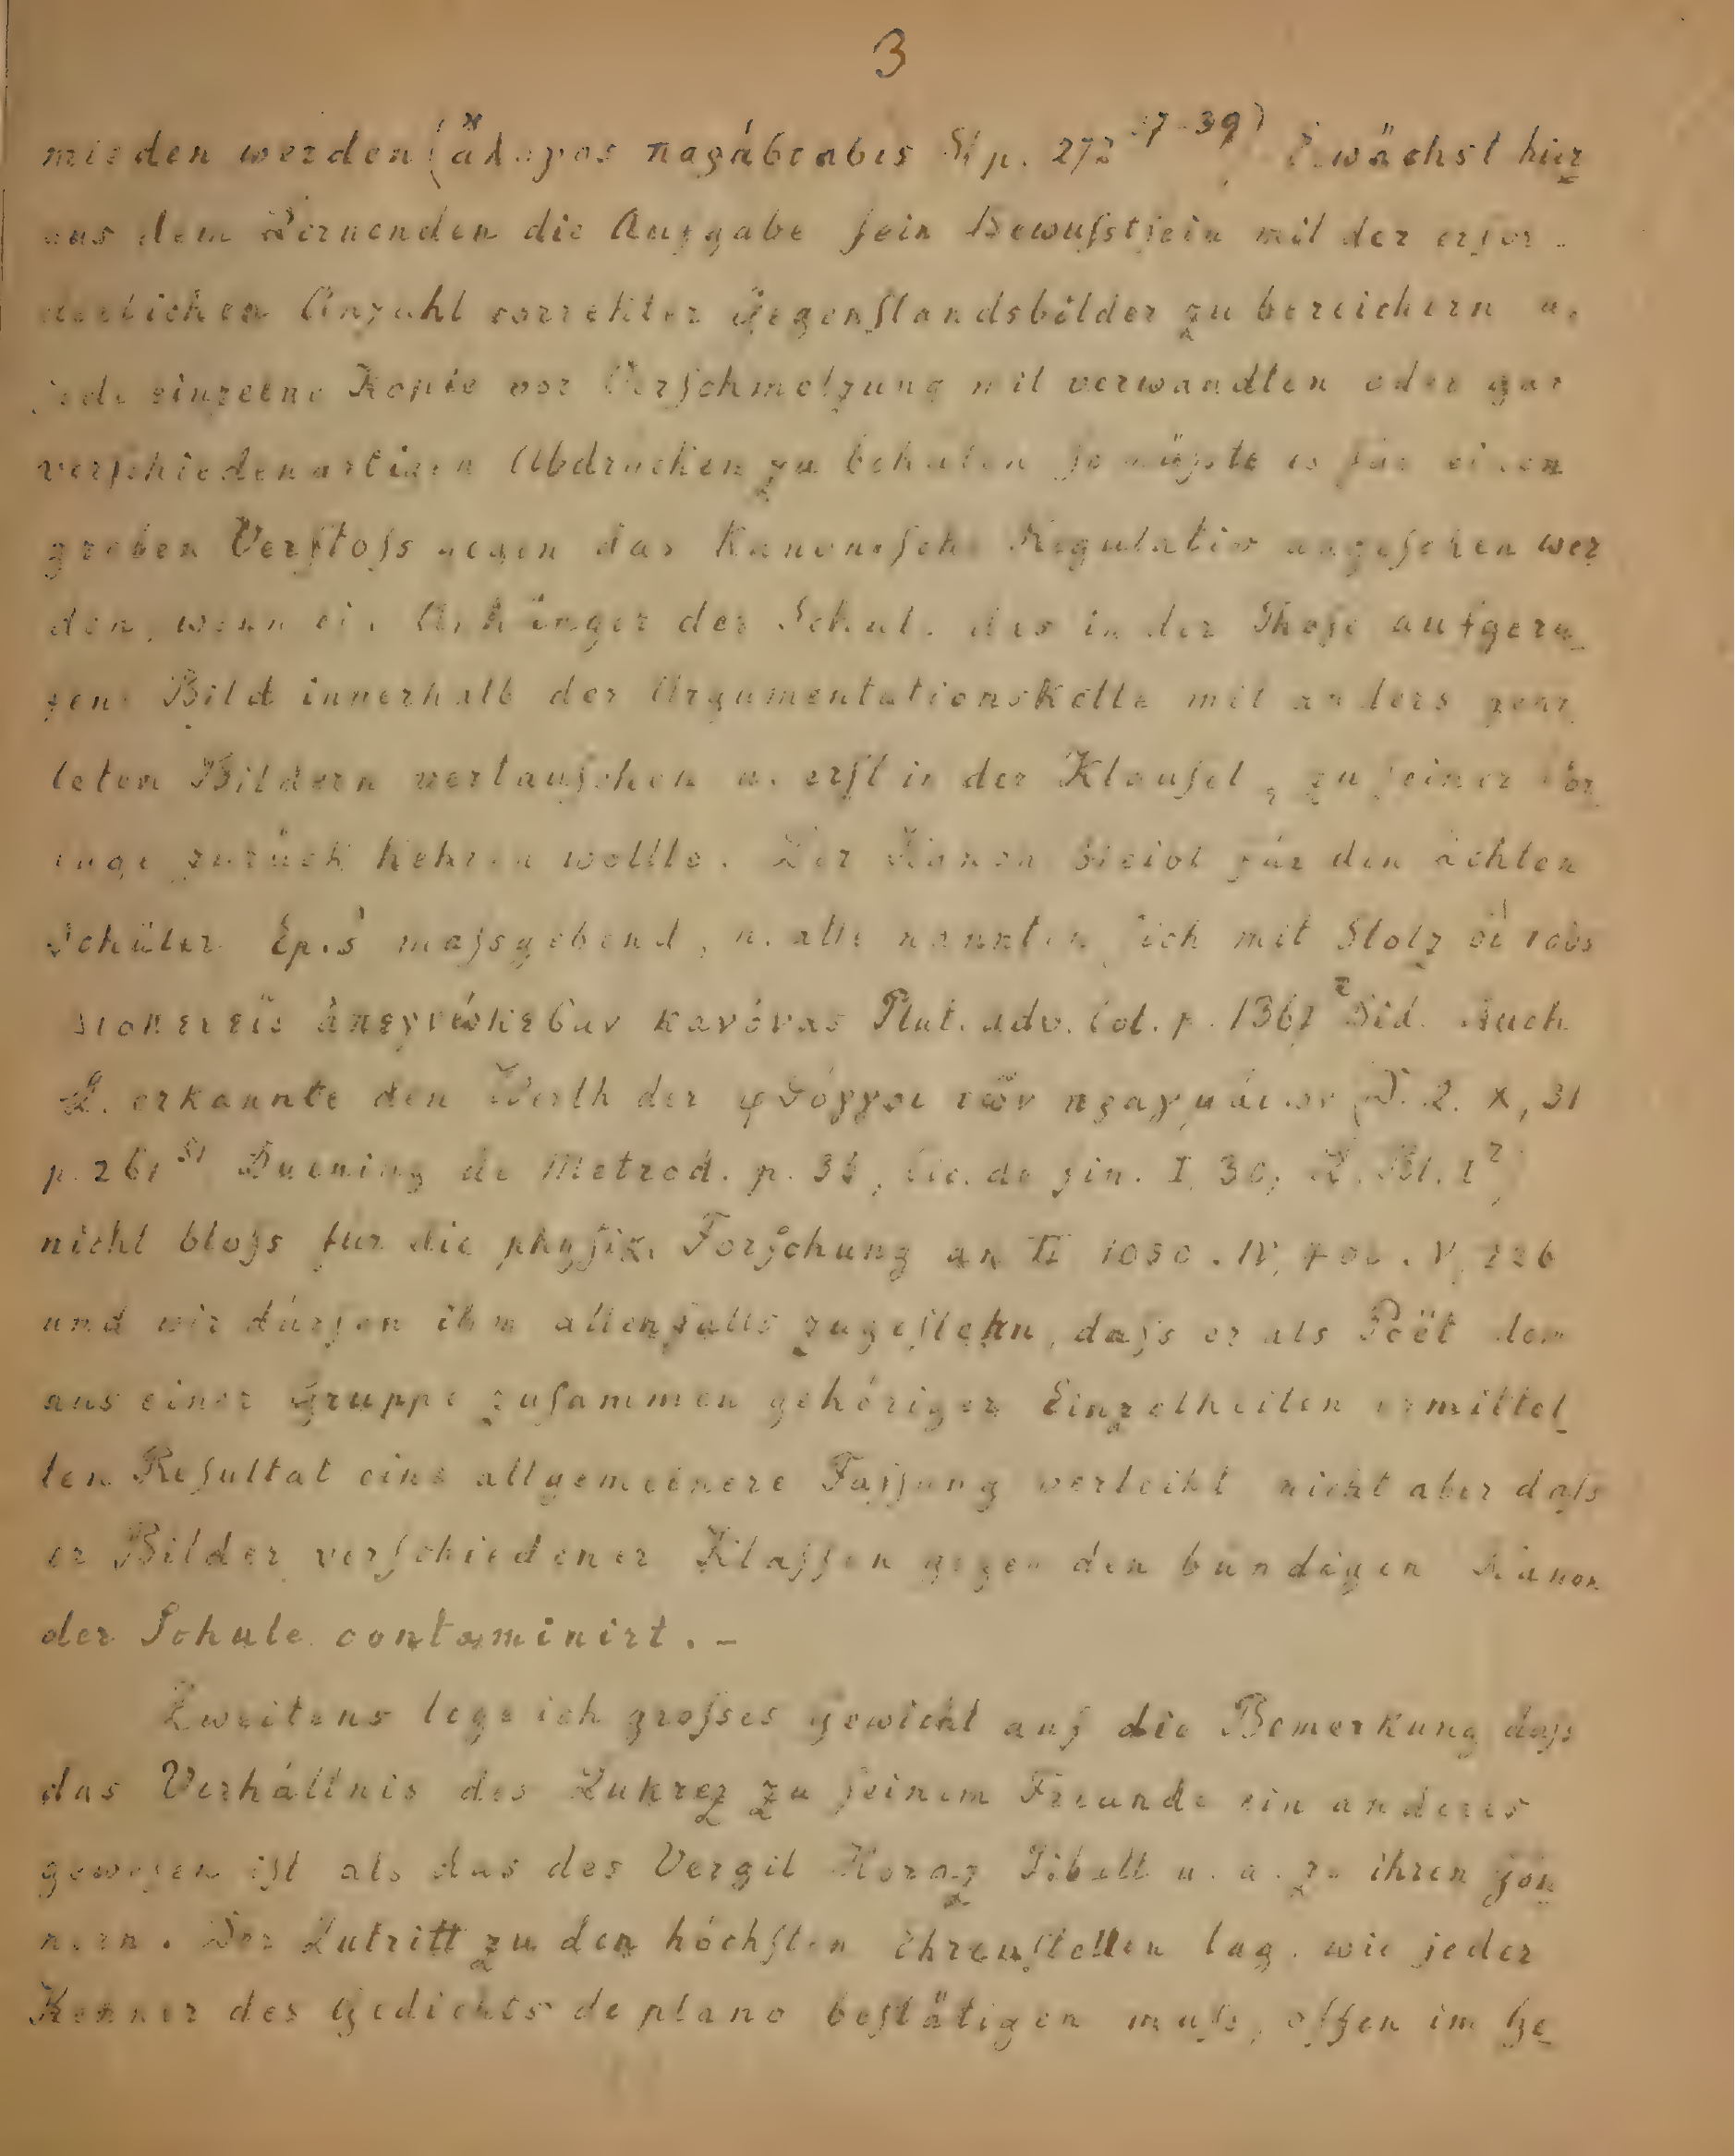 3
mieden werden (ἄλογος παράβασις St p. 272 37-39) Erwächst hier
aus dem Lernenden die Aufgabe ſein Bewuſstſein mit der erfor-
derlichen Anzahl correkter Gegenſtandsbilder zu bereichern u.
jede einzelne Kopie vor Verſchmelzung mit verwandten oder gar
verſchiedenartigen Abdrücken zu behüten ſo müſste es für einen
groben Verſtoſs gegen das kanoniſche Regulativ angeſehen wer
den, wenn ein Anhänger der Schule das in der Theſe aufgeru_
fene Bild innerhalb der Argumentationskette mit anders gear
teten Bildern vertauſchen u. erſt in der Klauſel, zu ſeiner Vor
lage zurück kehren wollte. Der Kanon bleibt für den ächten
Schüler Ep.s maſsgebend, u. alle nannten ſich mit Stolz οἱ τοὺς
ἀνεγνώκεσαν κανόνας Plut. adv. Col. p. 1367 Did. Auch
L. erkannte den Werth der φθόγγοι τῶν πραγμάτων (D. L. X, 31
p. 261 Duening de Metrod. p. 36, Cic. de fin. I 30;
nicht bloſs für die phyſik. Forſchung an II 1050. IV, V, 226
und wir dürfen ihm allenfalls zugeſtehn, daſs er als Poët dem
aus einer Gruppe zuſammen gehöriger Einzelheiten ermittel_
ten Reſultat eine allgemeinere Faſſung verleiht nicht aber daſs
er Bilder verſchiedener Klaſſen gegen den bündigen Kanon
der Schule contaminirt. –
Zweitens lege ich groſses Gewicht auf die Bemerkung daſs
das Verhältnis des Lukrez zu ſeinem Freunde ein anderes
geweſen iſt als das des Vergil Horaz Tibull u. a. zu ihren Gön
nern. Der Zutritt zu den höchſten Ehrenſtellen lag, wie jeder
Kenner des Gedichts de plano beſtätigen muſs, offen im Ge_